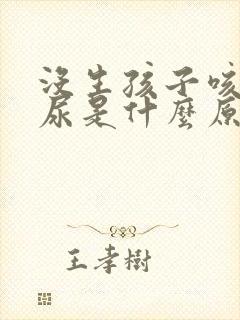 沒生孩子咳
尿是什麼原
王孝樹